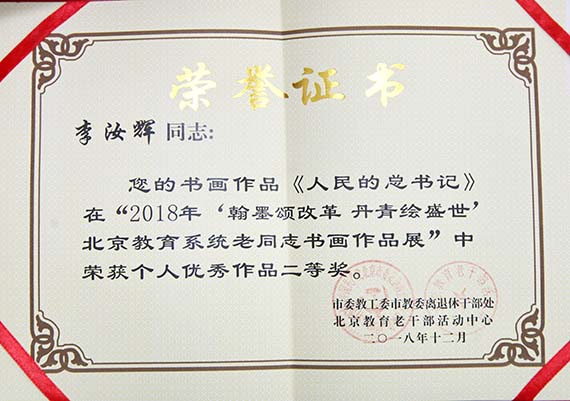 荣誉证书
李汝辉 同志:
您的书画作品《人民的总书记》
在“2018年‘翰墨颂改革 丹青绘盛世’
北京教育系统老同志书画作品展”中
荣获个人优秀作品二等奖。
市委教工委市教委离退休干部处
北京教育老干部活动中心
二〇一八年十二月